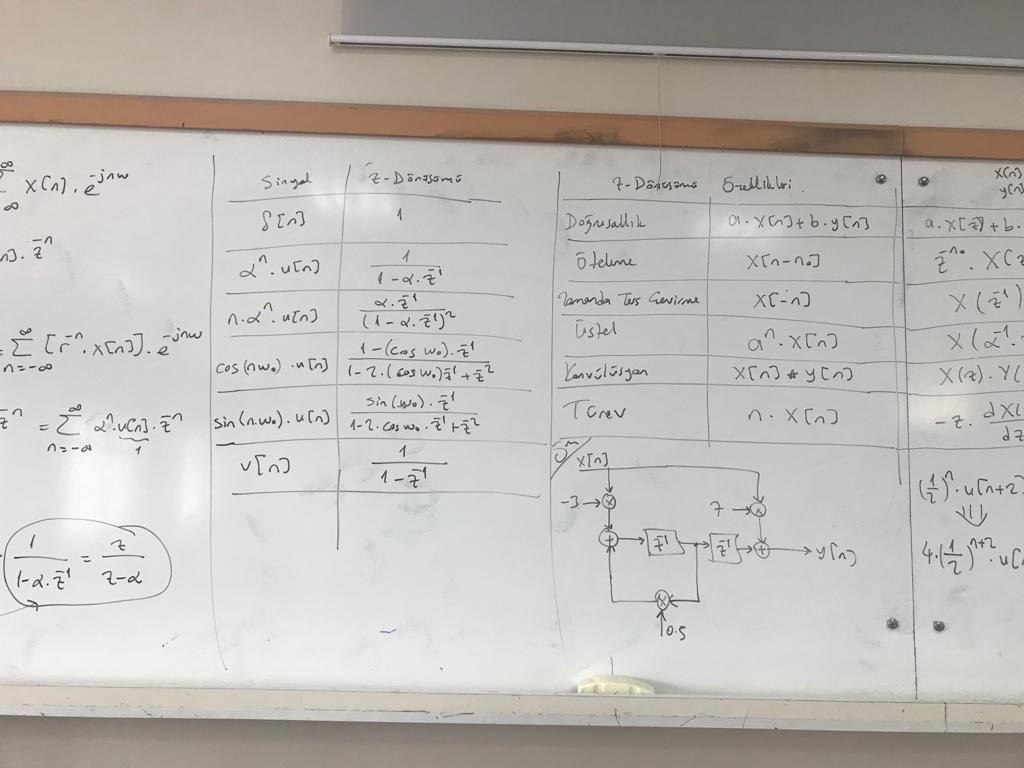 ∞
Σ x[n] . e^-jnw
-∞
n] . z^-n
= Σ [r^-n . x[n]] . e^-jnw
∞
n=-∞
z^-n = Σ α^n . u[n] . z^-n
∞
n=-∞
1
1/(1-α.z^-1) = z/(z-α)
Sinyal Z-Dönüşümü
δ[n] 1
α^n . u[n] 1/(1-α.z^-1)
n.α^n . u[n] α.z^-1/(1-α.z^-1)^2
cos(nw₀) . u[n] (1-(cos w₀).z^-1)/(1-2.(cos w₀)z^-1+z^-2)
sin(n.w₀) . u[n] (sin(w₀).z^-1)/(1-2.cos w₀.z^-1+z^-2)
u[n] 1/(1-z^-1)
Z-Dönüşümü Özellikleri
Doğrusallık a.x[n]+b.y[n]
Öteleme x[n-n₀]
Zamanda Ters Çevirme x[-n]
Üstel a^n . x[n]
Konvülüsyon x[n] * y[n]
Türev n . x[n]
x[n]
y[n]
a.X[z]+b.
z^-n₀ . X(z
X(z^-1)
X(α^-1.
X(z).Y(
-z. dX(/dz
Ö
x[n]
-3 → x
7 → x
+ z^-1 z^-1 + y[n]
x
0.5
(1/2)^n . u[n+2]
⇓
4.(1/2)^n+2 . u[n